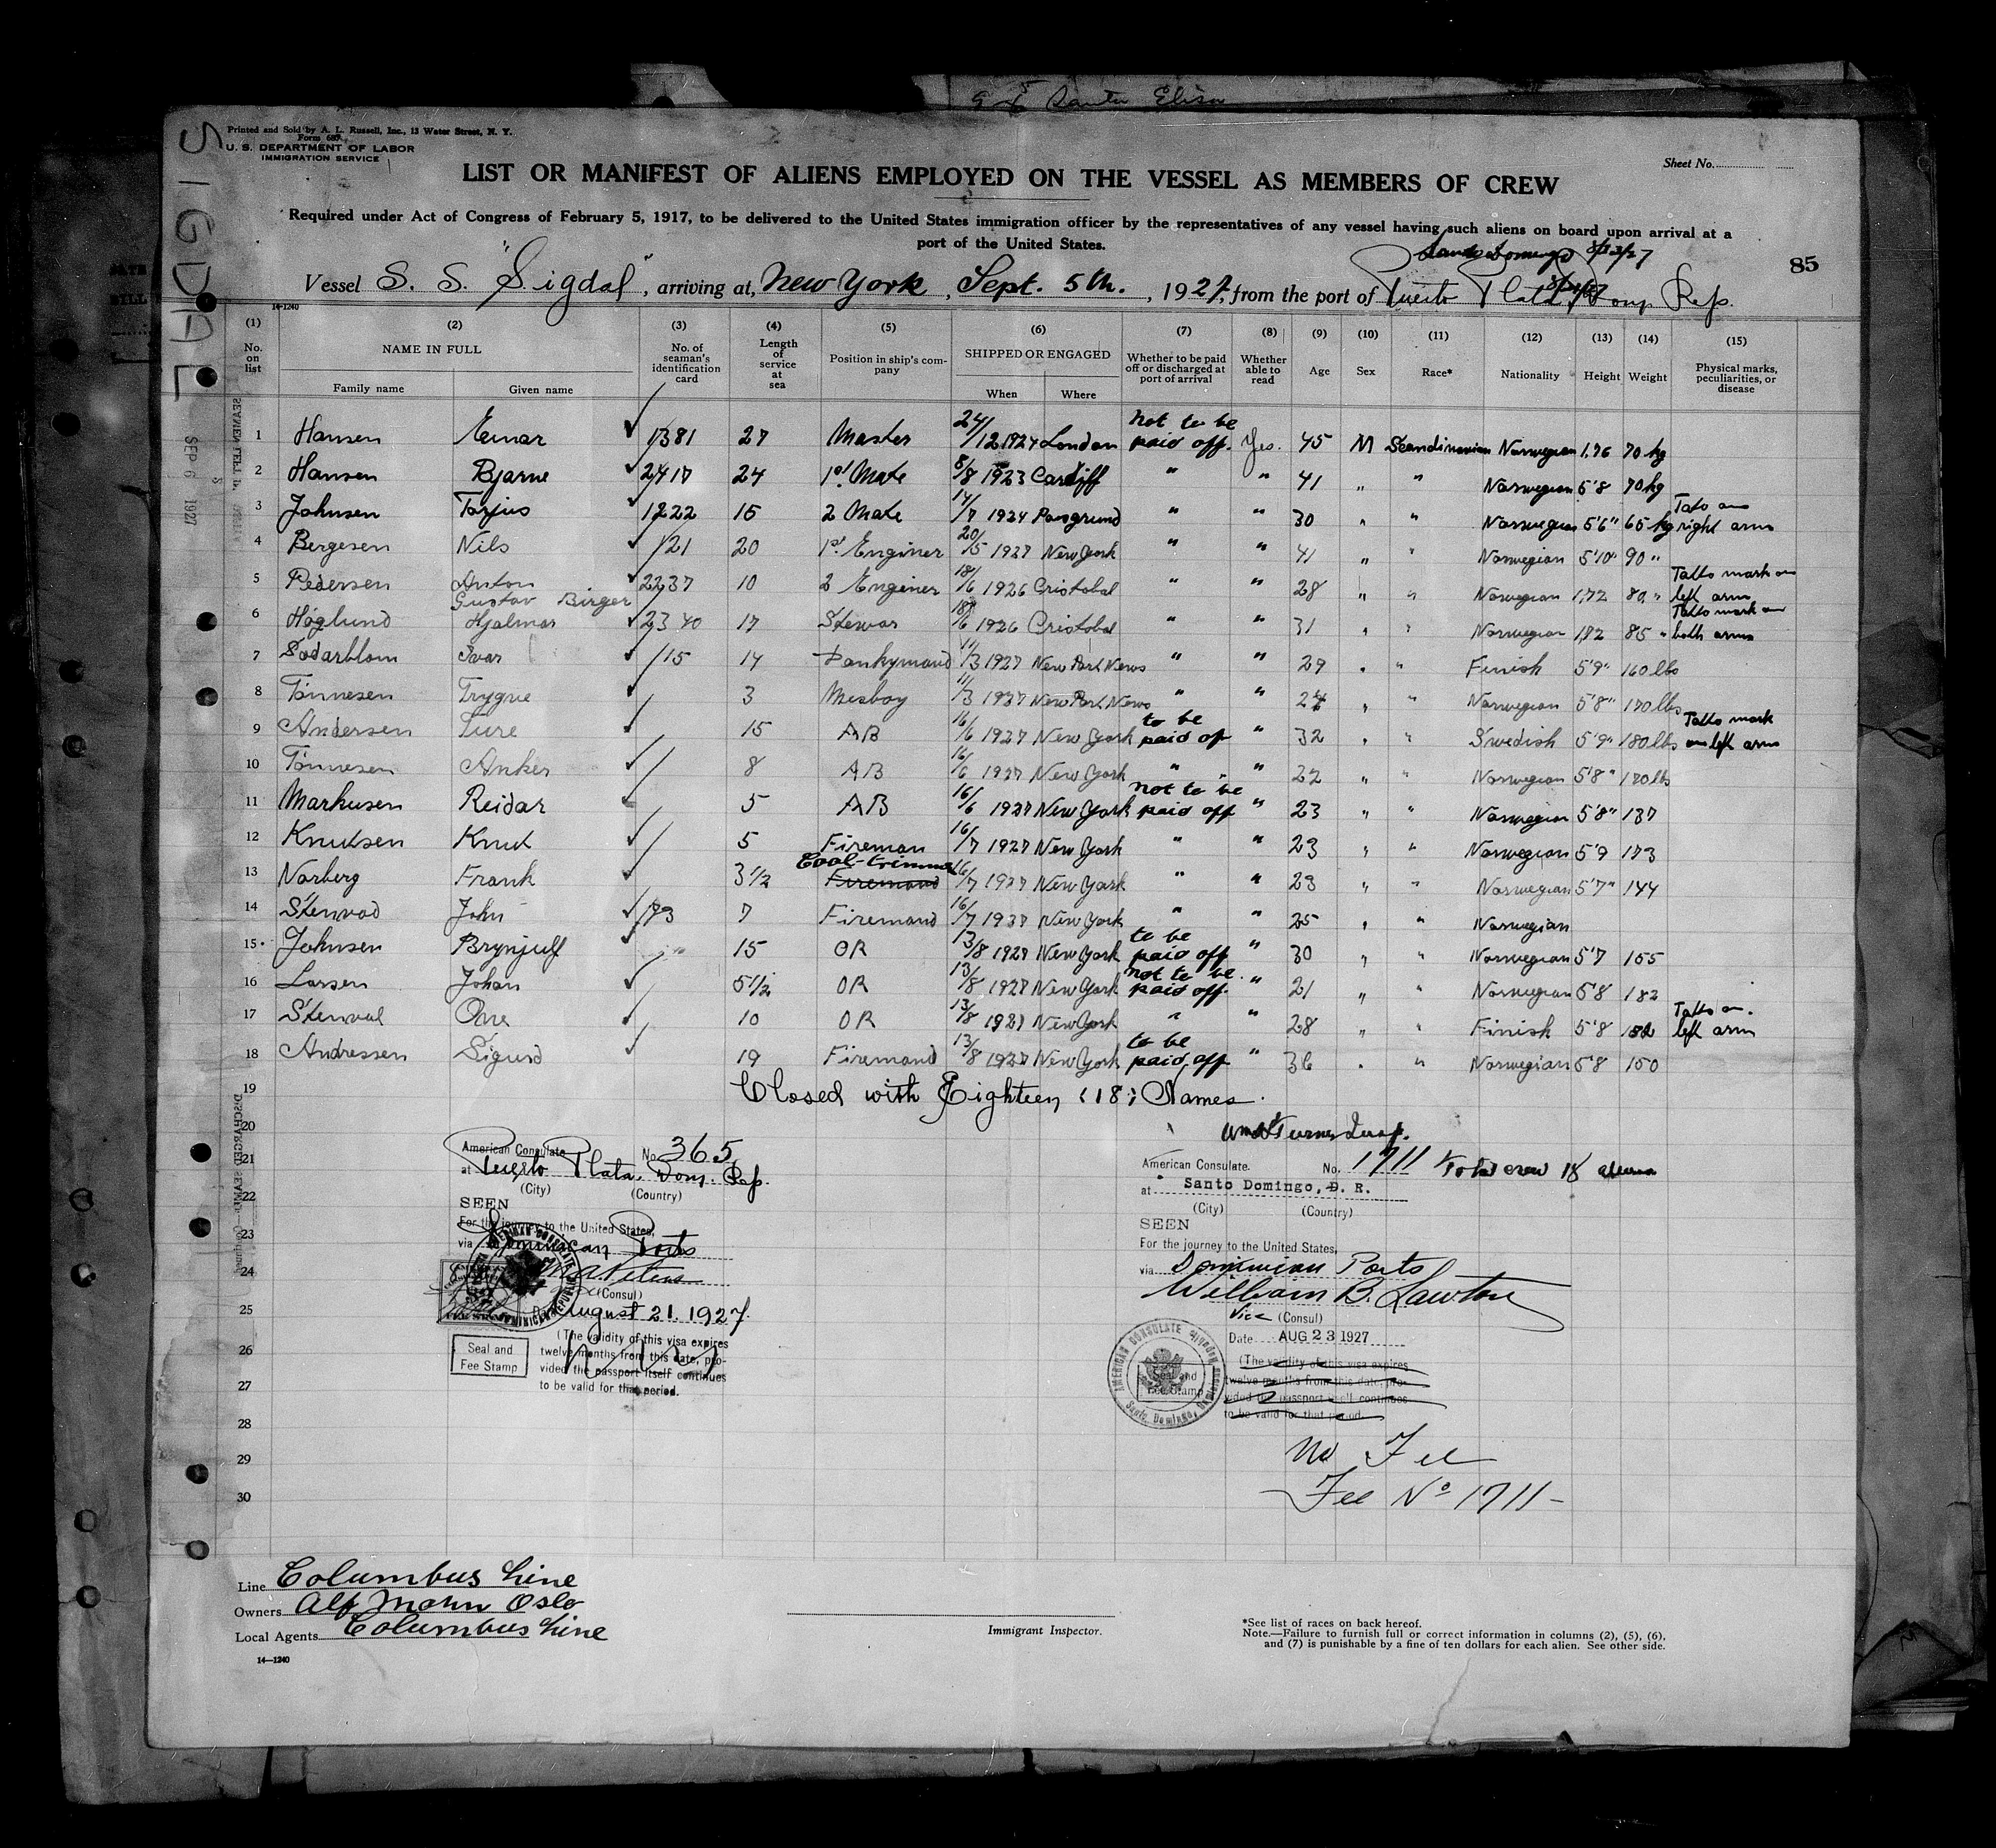 S S Santa Elisa
Printed and Sold by A. L. Russell, Inc., 13 Water Street, N. Y.
Form 689
U. S. DEPARTMENT OF LABOR
IMMIGRATION SERVICE
Sheet No.
LIST OR MANIFEST OF ALIENS EMPLOYED ON THE VESSEL AS MEMBERS OF CREW
Required under Act of Congress of February 5, 1917, to be delivered to the United States immigration officer by the representatives of any vessel having such aliens on board upon arrival at a
port of the United States.
Santo Domingo 8/23/27
85
Vessel S. S. "Sigdal", arriving at New York, Sept. 5th., 1927, from the port of Puerto Plata, Dom. Rep.
SIGDAL
SEP 6 1927
14-1240
(1) (2) (3) (4) (5) (6) (7) (8) (9) (10) (11) (12) (13) (14) (15)
No. on list NAME IN FULL No. of seaman's identification card Length of service at sea Position in ship's company SHIPPED OR ENGAGED Whether to be paid off or discharged at port of arrival Whether able to read Age Sex Race* Nationality Height Weight Physical marks, peculiarities, or disease
Family name Given name When Where
1 Hansen Einar 1381 27 Master 24/12 1924 London not to be paid off. Yes. 45 M Scandinavian Norwegian 1,76 70 kg
2 Hansen Bjarne 2417 24 1st Mate 8/8 1923 Cardiff " " 41 " " Norwegian 5'8 70 kg
3 Johnsen Torjus 1222 15 2 Mate 14/7 1924 Porsgrund " " 30 " " Norwegian 5'6" 65 kg Tato on right arm
4 Bergesen Nils 121 20 1st Enginer 20/5 1927 New York " " 41 " " Norwegian 5'10" 90 "
5 Pedersen Anton 2237 10 2 Enginer 18/6 1926 Cristobal " " 28 " " Norwegian 1,72 80 " Tatto mark on left arm
6 Höglund Gustav Birger Hjalmar 2340 17 Stewar 18/6 1926 Cristobal " " 31 " " Norwegian 1,82 85 " Tatto mark on both arms
7 Södarblom Ivar 15 14 Donkymand 11/3 1927 New Port News " " 29 " " Finish 5'9" 160 lbs
8 Tönnesen Trygve 3 Mesboy 11/3 1927 New Port News " " 24 " " Norwegian 5'8" 170 lbs
9 Andersen Ture 15 AB 16/6 1927 New York to be paid of " 32 " " Swedish 5'9" 180 lbs Tatto mark on left arm
10 Tönnesen Anker 8 AB 16/6 1927 New York " " 22 " " Norwegian 5'8" 170 lbs
11 Markusen Reidar 5 AB 16/6 1927 New York not to be paid off " 23 " " Norwegian 5'8" 137
12 Knudsen Knut 5 Fireman 16/7 1927 New York " " 23 " " Norwegian 5'9 173
13 Norberg Frank 3 1/2 Coal-trimmer Firemand 16/7 1927 New York " " 23 " " Norwegian 5'7" 144
14 Stenvod John 173 7 Firemand 16/7 1927 New York " " 25 " " Norwegian
15 Johnsen Brynjulf 15 OR 13/8 1927 New York to be paid off " 30 " " Norwegian 5'7 155
16 Larsen Johan 5 1/2 OR 13/8 1927 New York not to be paid off. " 21 " " Norwegian 5'8 182
17 Stenval Ove 10 OR 13/8 1927 New York " " 28 " " Finish 5'8 182 Tatto on left arm
18 Andressen Sigurd 19 Firemand 13/8 1927 New York to be paid off " 36 " " Norwegian 5'8 150
19 Closed with Eighteen (18) Names.
20
21
22
23
24
25
26
27
28
29
30
American Consulate No. 365
at Puerto Plata, Dom. Rep.
(City) (Country)
SEEN
For the journey to the United States,
via Dominican Ports
(Consul)
August 21. 1927.
(The validity of this visa expires
twelve months from this date, pro-
vided the passport itself continues
to be valid for that period.
Seal and
Fee Stamp
Turner Insp.
Total crew 18 aliens
American Consulate. No. 1711
at Santo Domingo, D. R.
(City) (Country)
SEEN
For the journey to the United States,
via Dominican Ports
William B. Lawton
Vice (Consul)
Date AUG 23 1927
(The validity of this visa expires
twelve months from this date, pro-
vided the passport itself continues
to be valid for that period.
Seal and
Fee Stamp
AMERICAN CONSULATE
Santo Domingo, Dominican Republic
No Fee
Fee No 1711-
Line Columbus Line
Owners Alf Mohn Oslo
Local Agents Columbus Line
14—1240
Immigrant Inspector.
*See list of races on back hereof.
Note.—Failure to furnish full or correct information in columns (2), (5), (6),
and (7) is punishable by a fine of ten dollars for each alien. See other side.